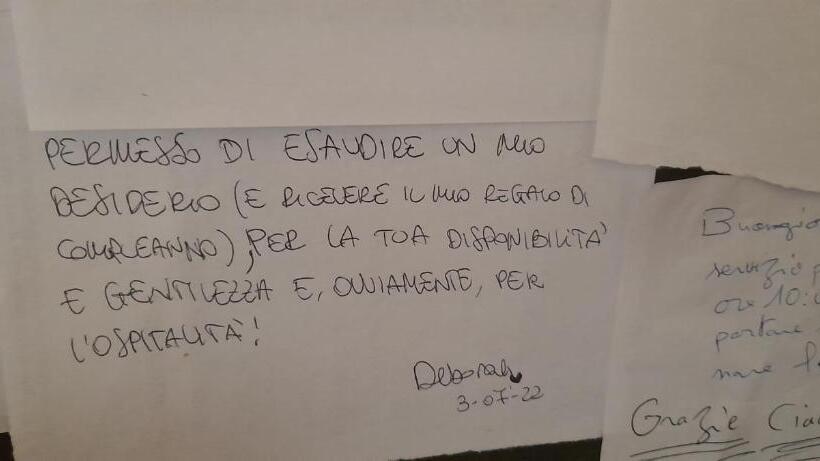 PERMESSO DI ESAUDIRE UN MIO
DESIDERIO (E RICEVERE IL MIO REGALO DI
COMPLEANNO), PER LA TUA DISPONIBILITÀ
E GENTILEZZA E, OVVIAMENTE, PER
L'OSPITALITÀ!
Deborah
3-07-22
Buongio
servizio p
ore 10:
portare
Grazie Cia